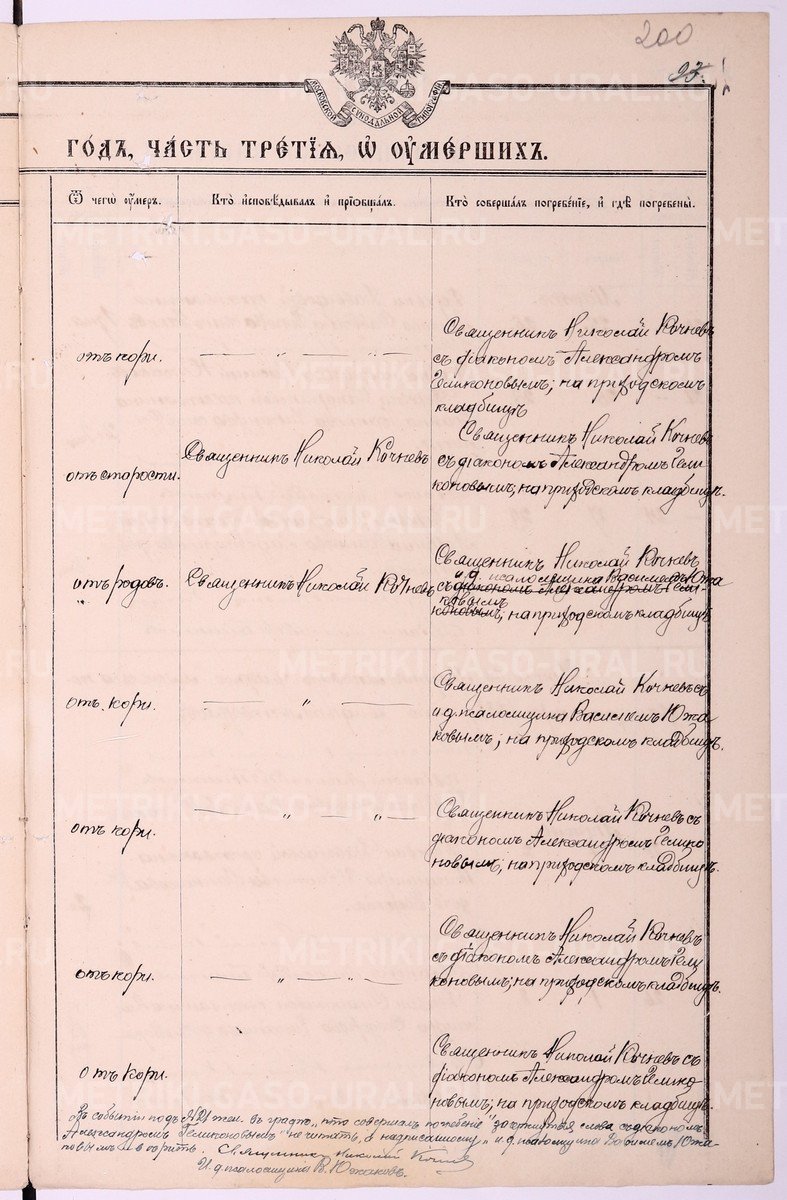 200
93.
МОСКОВСКОЙ СУНОДАЛЬНОЙ ТИПОГРАФІИ
ГОДЪ, ЧАСТЬ ТРЕТІЯ, Ѿ ОУМЕРШИХЪ.
Ѿ чегѡ оумеръ.
Кто исповѣдывалъ и пріобщалъ.
Кто совершалъ погребеніе, и гдѣ погребены.
отъ кори.
— „ — „ —
Священникъ Николай Кочневъ
съ діакономъ Александромъ
Геликоновымъ; на приходскомъ
кладбищѣ
отъ старости.
Священникъ Николай Кочневъ
Священникъ Николай Кочневъ
съ діакономъ Александромъ Гели
коновымъ; на приходскомъ кладбищѣ.
отъ родовъ.
Священникъ Николай Кочневъ
Священникъ Николай Кочневъ
и.д. псаломщика Василіемъ Южа
съ діакономъ Александромъ Гели-
ковымъ
коновымъ; на приходскомъ кладбищѣ
отъ кори.
— „ —
Священникъ Николай Кочневъ съ
и д. псаломщика Василіемъ Южа
ковымъ; на приходскомъ кладбищѣ.
отъ кори.
— „ — „ —
Священникъ Николай Кочневъ съ
діакономъ Александромъ Гелико
новымъ; на приходскомъ кладбищѣ.
отъ кори.
— „ — „ —
Священникъ Николай Кочневъ
съ діакономъ Александромъ Гели
коновымъ; на приходскомъ кладбищѣ.
отъ кори.
Священникъ Николай Кочневъ съ
діакономъ Александромъ Гелико-
новымъ; на приходскомъ кладбищѣ.
Въ событіи подъ № 21 жен. въ графѣ „кто совершалъ погребеніе" зачеркнутыя слова съ діакономъ
Александромъ Геликоновымъ" не читать, а надписанному „и д. псаломщика Василіемъ Южа-
ковымъ" вѣрить. Священникъ Николай Кочневъ
И. д. псаломщика В. Южаковъ.
METRIKI.GASO-URAL.RU